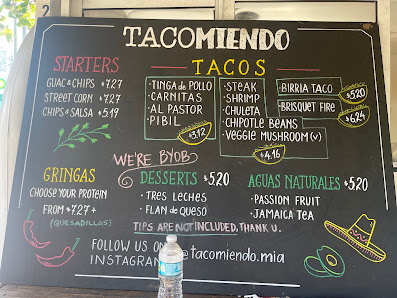 TACOMIENDO
STARTERS
GUAC & CHIPS $7.27
STREET CORN $7.27
CHIPS & SALSA $5.19
TACOS
· TINGA de POLLO
· CARNITAS
· AL PASTOR
· PIBIL
$3.12
· STEAK
· SHRIMP
· CHULETA
· CHIPOTLE BEANS
· VEGGIE MUSHROOM (V)
$4.16
· BIRRIA TACO
$5.20
· BRISQUET FIRE
$6.24
WE'RE BYOB
GRINGAS
CHOOSE YOUR PROTEIN
FROM $7.27+
(QUESADILLAS)
DESSERTS $5.20
· TRES LECHES
· FLAN de QUESO
AGUAS NATURALES $5.20
· PASSION FRUIT
· JAMAICA TEA
TIPS ARE NOT INCLUDED, THANK U.
FOLLOW US ON
INSTAGRAM @tacomiendo.mia